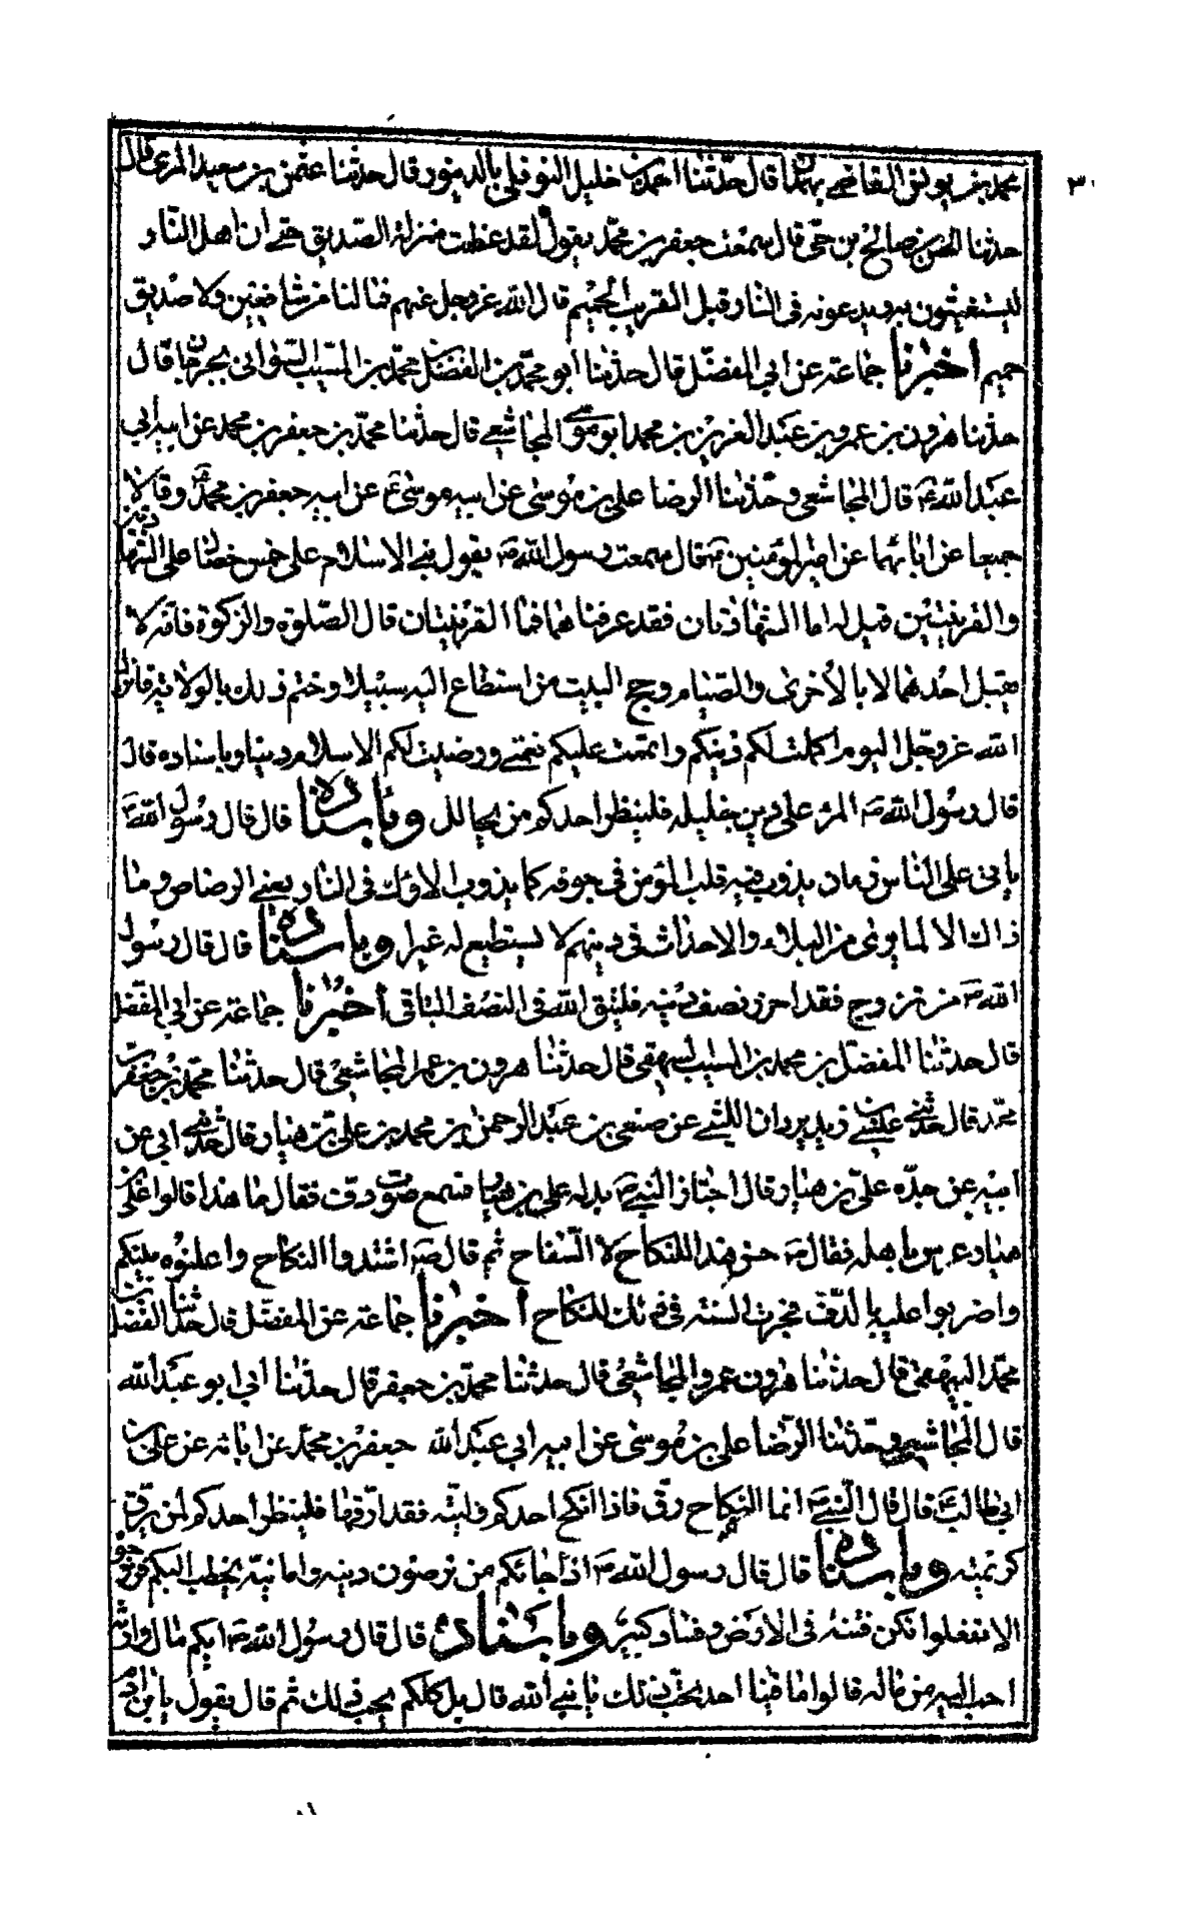 محمد بن يونس القاضي بهمدان قال حدثنا احمد بن خليل النوفلي بالدينور قال حدثنا عثمن بن سعيد المزني قال
حدثنا الحسن بن صالح بن حي قال سمعت جعفر بن محمد يقول لقد عظمت منزلة الصديق حتى ان اهل النار
ليستغيثون به ويدعونه في النار قبل القريب الحميم قال الله عز وجل عنهم فما لنا من شافعين ولا صديق
حميم أخبرنا جماعة عن ابي المفضل قال حدثنا ابو محمد بن الفضل بن محمد بن المسيب الشعراني بجرجان قال
حدثنا هرون بن عمرو بن عبد العزيز بن محمد ابو موسى المجاشعي قال حدثنا محمد بن جعفر بن محمد عن ابيه ابي
عبد الله ع قال المجاشعي وحدثنا الرضا علي بن موسى عن ابيه موسى ع عن ابيه جعفر بن محمد وقالا
جميعا عن ابائهما عن امير المؤمنين ع قال سمعت رسول الله ص يقول بني الاسلام على خمس خصال على الشهادتين
والقرينتين قيل له اما الشهادتان فقد عرفناهما فما القرينتان قال الصلوة والزكوة فانه لا
يقبل احدهما الا بالأخرى والصيام وحج البيت من استطاع اليه سبيلا وختم ذلك بالولاية فانزل
الله عز وجل اليوم اكملت لكم دينكم واتممت عليكم نعمتي ورضيت لكم الاسلام دينا وباسناده قال
قال رسول الله ص المرء على دين خليله فلينظر احدكم من يخالل وباسناده قال قال رسول الله ص
يأتي على الناس زمان يذوب فيه قلب المؤمن في جوفه كما يذوب الآنك في النار يعني الرصاص وما
ذاك الا لما يرى من البلاء والاحداث في دينهم لا يستطيع له غيرا وباسناده قال قال رسول
الله ص من تزوج فقد احرز نصف دينه فليتق الله في النصف الباقي أخبرنا جماعة عن ابي المفضل
قال حدثنا المفضل بن محمد بن المسيب البيهقي قال حدثنا هرون بن عمر المجاشعي قال حدثنا محمد بن جعفر بن
محمد قال حدثني عيسى بن يزيد بن دان الليثي عن صيفي بن عبد الرحمن بن محمد بن علي بن هبار قال حدثني ابي عن
ابيه عن جده علي بن هبار قال اجتاز النبي ص بدار علي بن هبار فسمع صوت دف فقال ما هذا قالوا علي بن
هبار عرس باهله فقال ص حسن هذا النكاح لا السفاح ثم قال ص اشيدوا النكاح واعلنوه بينكم
واضربوا عليه بالدف فجرت السنة في ذلك للنكاح أخبرنا جماعة عن المفضل قال حدثنا الفضل بن
محمد البيهقي قال حدثنا هرون عمرو المجاشعي قال حدثنا محمد بن جعفر قال حدثنا ابي ابو عبد الله
قال المجاشعي وحدثنا الرضا علي بن موسى عن ابيه ابي عبد الله جعفر بن محمد عن ابائه عن علي بن
ابي طالب ع قال قال النبي ص انما النكاح رق فاذا انكح احدكم وليته فقد ارقها فلينظر احدكم لمن يرق
كريمته وباسناده قال قال رسول الله ص اذا جائكم من ترضون دينه وامانته يخطب اليكم فزوجوه
الا تفعلوا تكن فتنة في الارض وفساد كبير وباسناده قال قال رسول الله ص ايكم مال وارثه
احب اليه من ماله قالوا ما فينا احد يحب ذلك يا نبي الله قال بل كلكم يحب ذلك ثم قال يقول يا بن ادم